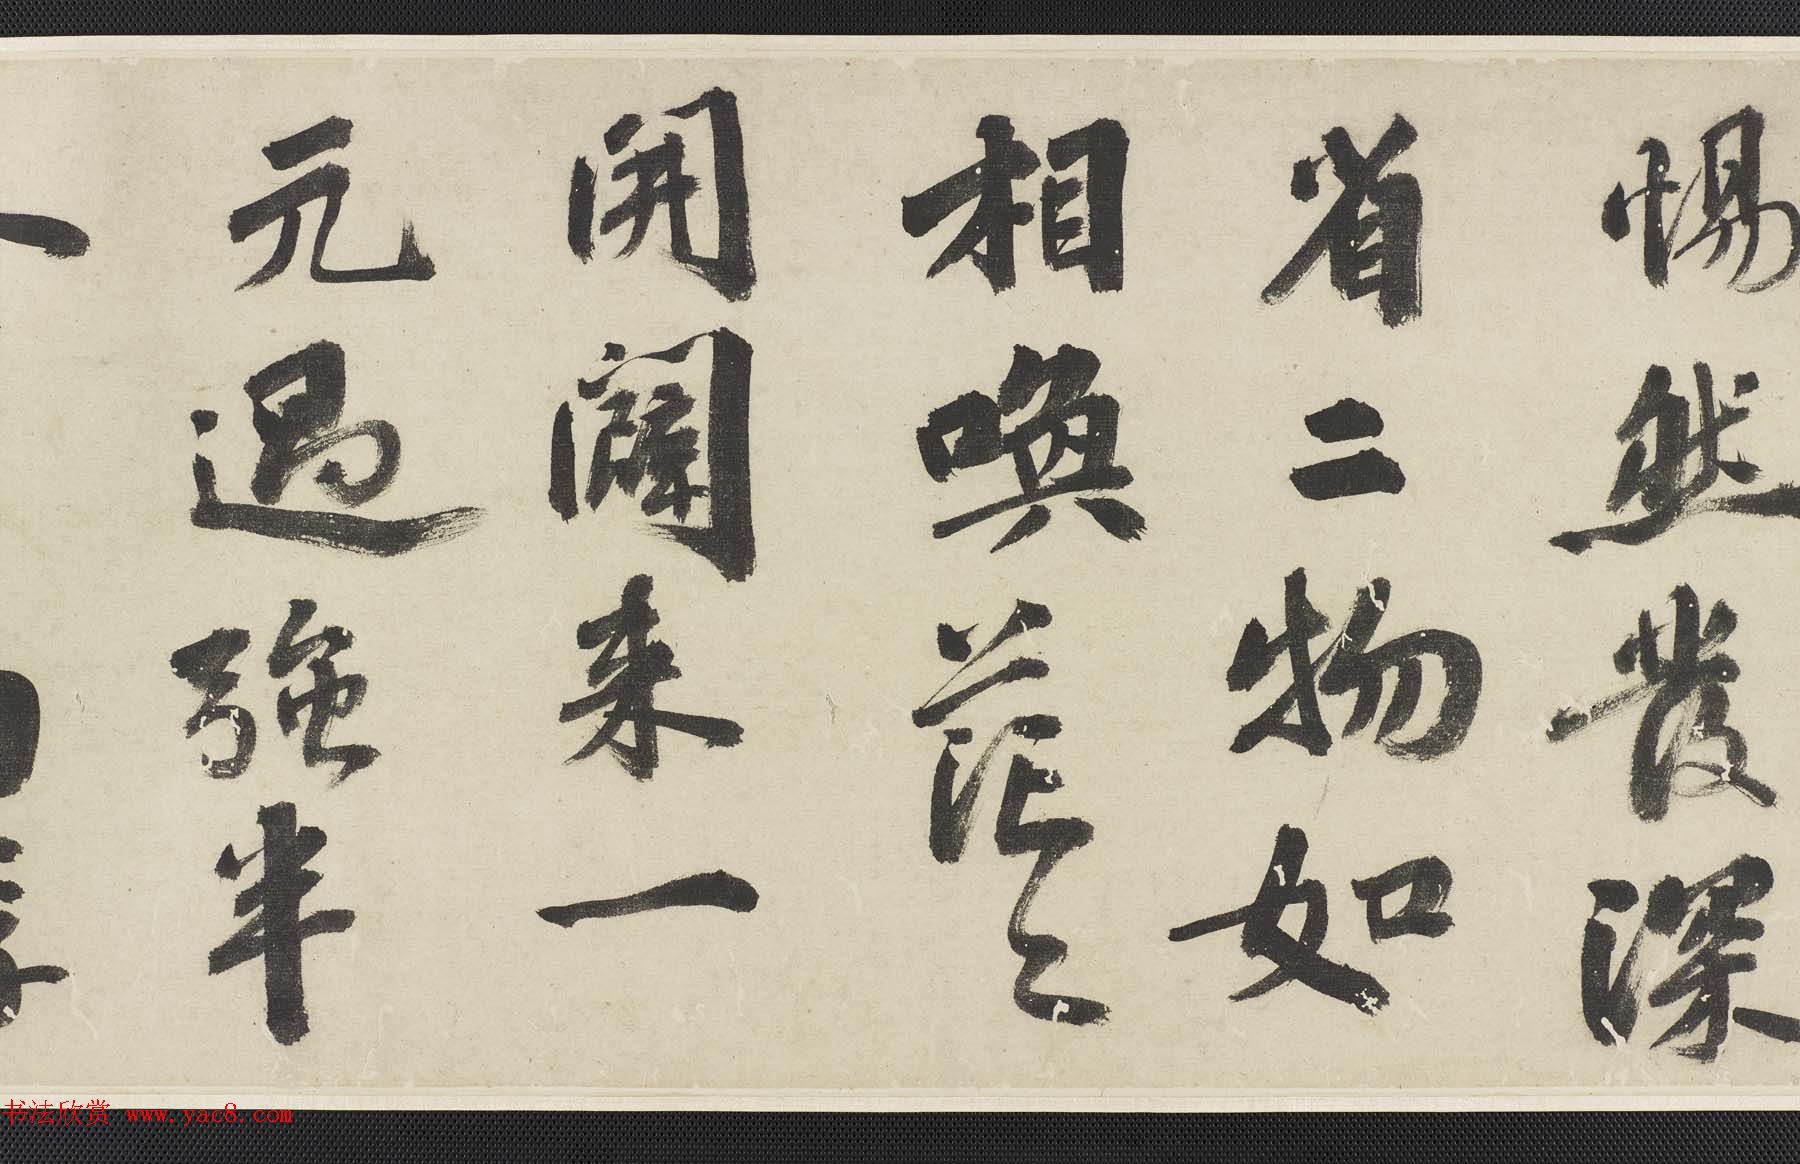 惕然發深
省二物如
相喚茫〻
開闔来一
元過強半
书法欣赏 www.yac8.com